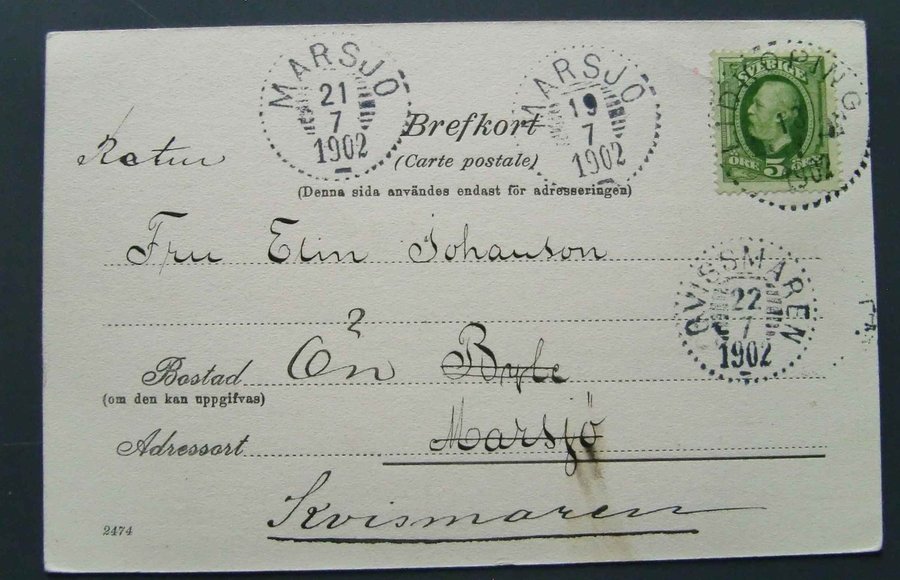 MARSJÖ
21
7
1902
MARSJÖ
19
7
1902
SVERIGE
ÖRE 5 ÖRE
1902
Brefkort
(Carte postale)
(Denna sida användes endast för adresseringen)
Retur
Fru Elin Johanson
QVISSMAREN
22
7
1902
?
Bostad Ön
(om den kan uppgifvas)
Adressort Marsjö
Kvismaren
2474